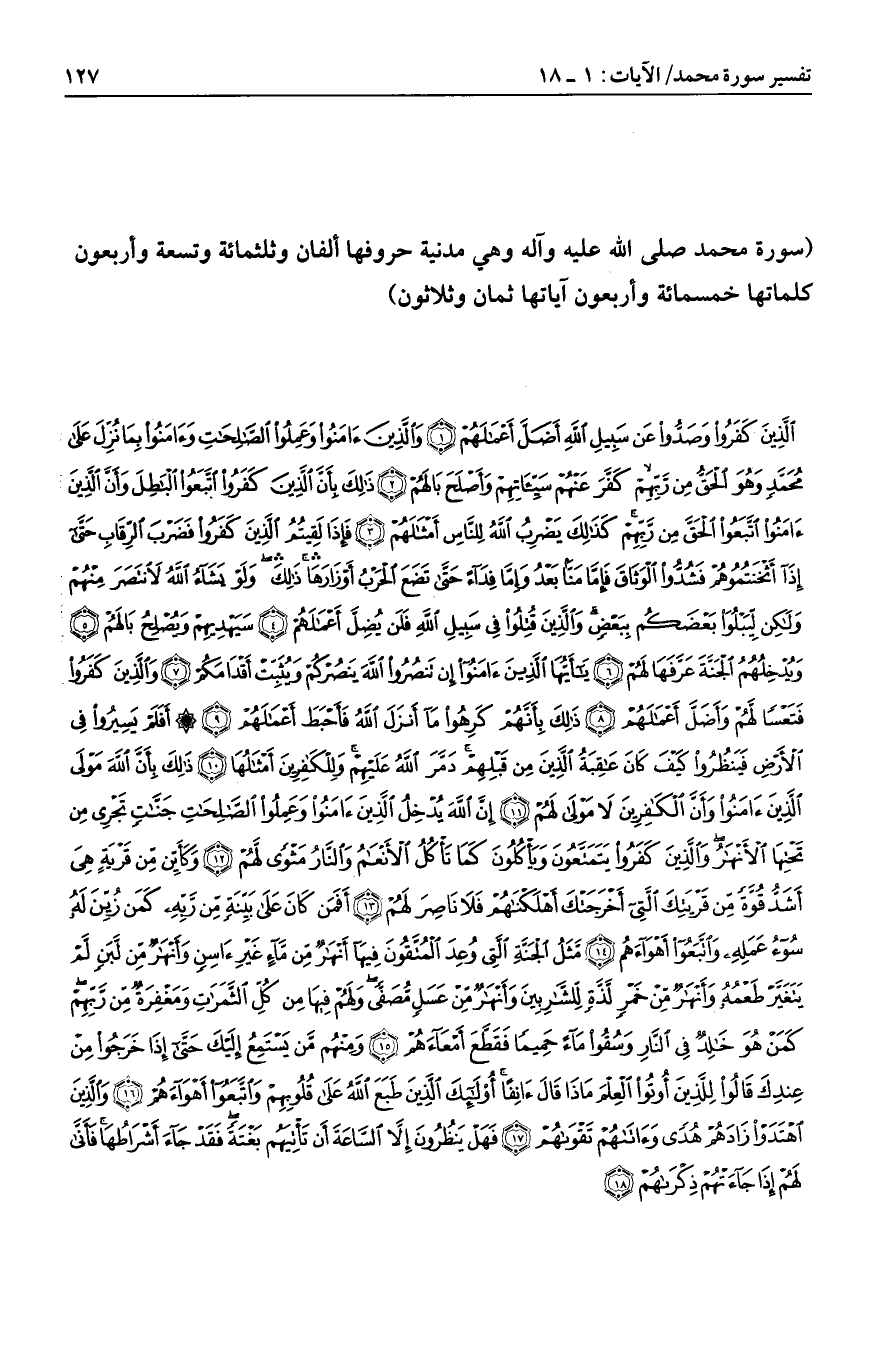 تفسير سورة محمد/ الآيات: ١ ـ ١٨
١٢٧
(سورة محمد صلى الله عليه وآله وهي مدنية حروفها ألفان وثلثمائة وتسعة وأربعون
كلماتها خمسمائة وأربعون آياتها ثمان وثلاثون)
ٱلَّذِينَ كَفَرُوا۟ وَصَدُّوا۟ عَن سَبِيلِ ٱللَّهِ أَضَلَّ أَعْمَـٰلَهُمْ ١ وَٱلَّذِينَ ءَامَنُوا۟ وَعَمِلُوا۟ ٱلصَّـٰلِحَـٰتِ وَءَامَنُوا۟ بِمَا نُزِّلَ عَلَىٰ
مُحَمَّدٍ وَهُوَ ٱلْحَقُّ مِن رَّبِّهِمْ ۙ كَفَّرَ عَنْهُمْ سَيِّـَٔاتِهِمْ وَأَصْلَحَ بَالَهُمْ ٢ ذَٰلِكَ بِأَنَّ ٱلَّذِينَ كَفَرُوا۟ ٱتَّبَعُوا۟ ٱلْبَـٰطِلَ وَأَنَّ ٱلَّذِينَ
ءَامَنُوا۟ ٱتَّبَعُوا۟ ٱلْحَقَّ مِن رَّبِّهِمْ ۚ كَذَٰلِكَ يَضْرِبُ ٱللَّهُ لِلنَّاسِ أَمْثَـٰلَهُمْ ٣ فَإِذَا لَقِيتُمُ ٱلَّذِينَ كَفَرُوا۟ فَضَرْبَ ٱلرِّقَابِ حَتَّىٰٓ
إِذَآ أَثْخَنتُمُوهُمْ فَشُدُّوا۟ ٱلْوَثَاقَ فَإِمَّا مَنًّۢا بَعْدُ وَإِمَّا فِدَآءً حَتَّىٰ تَضَعَ ٱلْحَرْبُ أَوْزَارَهَا ۚ ذَٰلِكَ ۖ وَلَوْ يَشَآءُ ٱللَّهُ لَٱنتَصَرَ مِنْهُمْ
وَلَـٰكِن لِّيَبْلُوَا۟ بَعْضَكُم بِبَعْضٍ ۗ وَٱلَّذِينَ قُتِلُوا۟ فِى سَبِيلِ ٱللَّهِ فَلَن يُضِلَّ أَعْمَـٰلَهُمْ ٤ سَيَهْدِيهِمْ وَيُصْلِحُ بَالَهُمْ ٥
وَيُدْخِلُهُمُ ٱلْجَنَّةَ عَرَّفَهَا لَهُمْ ٦ يَـٰٓأَيُّهَا ٱلَّذِينَ ءَامَنُوٓا۟ إِن تَنصُرُوا۟ ٱللَّهَ يَنصُرْكُمْ وَيُثَبِّتْ أَقْدَامَكُمْ ٧ وَٱلَّذِينَ كَفَرُوا۟
فَتَعْسًا لَّهُمْ وَأَضَلَّ أَعْمَـٰلَهُمْ ٨ ذَٰلِكَ بِأَنَّهُمْ كَرِهُوا۟ مَآ أَنزَلَ ٱللَّهُ فَأَحْبَطَ أَعْمَـٰلَهُمْ ٩ ۞ أَفَلَمْ يَسِيرُوا۟ فِى
ٱلْأَرْضِ فَيَنظُرُوا۟ كَيْفَ كَانَ عَـٰقِبَةُ ٱلَّذِينَ مِن قَبْلِهِمْ ۚ دَمَّرَ ٱللَّهُ عَلَيْهِمْ ۖ وَلِلْكَـٰفِرِينَ أَمْثَـٰلُهَا ١٠ ذَٰلِكَ بِأَنَّ ٱللَّهَ مَوْلَى
ٱلَّذِينَ ءَامَنُوا۟ وَأَنَّ ٱلْكَـٰفِرِينَ لَا مَوْلَىٰ لَهُمْ ١١ إِنَّ ٱللَّهَ يُدْخِلُ ٱلَّذِينَ ءَامَنُوا۟ وَعَمِلُوا۟ ٱلصَّـٰلِحَـٰتِ جَنَّـٰتٍ تَجْرِى مِن
تَحْتِهَا ٱلْأَنْهَـٰرُ ۖ وَٱلَّذِينَ كَفَرُوا۟ يَتَمَتَّعُونَ وَيَأْكُلُونَ كَمَا تَأْكُلُ ٱلْأَنْعَـٰمُ وَٱلنَّارُ مَثْوًى لَّهُمْ ١٢ وَكَأَيِّن مِّن قَرْيَةٍ هِىَ
أَشَدُّ قُوَّةً مِّن قَرْيَتِكَ ٱلَّتِىٓ أَخْرَجَتْكَ أَهْلَكْنَـٰهُمْ فَلَا نَاصِرَ لَهُمْ ١٣ أَفَمَن كَانَ عَلَىٰ بَيِّنَةٍ مِّن رَّبِّهِۦ كَمَن زُيِّنَ لَهُۥ
سُوٓءُ عَمَلِهِۦ وَٱتَّبَعُوٓا۟ أَهْوَآءَهُم ١٤ مَّثَلُ ٱلْجَنَّةِ ٱلَّتِى وُعِدَ ٱلْمُتَّقُونَ فِيهَآ أَنْهَـٰرٌ مِّن مَّآءٍ غَيْرِ ءَاسِنٍ وَأَنْهَـٰرٌ مِّن لَّبَنٍ لَّمْ
يَتَغَيَّرْ طَعْمُهُۥ وَأَنْهَـٰرٌ مِّنْ خَمْرٍ لَّذَّةٍ لِّلشَّـٰرِبِينَ وَأَنْهَـٰرٌ مِّنْ عَسَلٍ مُّصَفًّى ۖ وَلَهُمْ فِيهَا مِن كُلِّ ٱلثَّمَرَٰتِ وَمَغْفِرَةٌ مِّن رَّبِّهِمْ ۖ
كَمَنْ هُوَ خَـٰلِدٌ فِى ٱلنَّارِ وَسُقُوا۟ مَآءً حَمِيمًا فَقَطَّعَ أَمْعَآءَهُمْ ١٥ وَمِنْهُم مَّن يَسْتَمِعُ إِلَيْكَ حَتَّىٰٓ إِذَا خَرَجُوا۟ مِنْ
عِندِكَ قَالُوا۟ لِلَّذِينَ أُوتُوا۟ ٱلْعِلْمَ مَاذَا قَالَ ءَانِفًا ۚ أُو۟لَـٰٓئِكَ ٱلَّذِينَ طَبَعَ ٱللَّهُ عَلَىٰ قُلُوبِهِمْ وَٱتَّبَعُوٓا۟ أَهْوَآءَهُمْ ١٦ وَٱلَّذِينَ
ٱهْتَدَوْا۟ زَادَهُمْ هُدًى وَءَاتَىٰهُمْ تَقْوَىٰهُمْ ١٧ فَهَلْ يَنظُرُونَ إِلَّا ٱلسَّاعَةَ أَن تَأْتِيَهُم بَغْتَةً ۖ فَقَدْ جَآءَ أَشْرَاطُهَا ۚ فَأَنَّىٰ
لَهُمْ إِذَا جَآءَتْهُمْ ذِكْرَىٰهُمْ ١٨